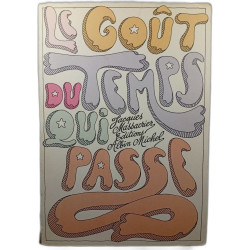 LE GOÛT
DU TEMPS
QUI
PASSE
Jacques
Massacrier
Editions
Albin Michel